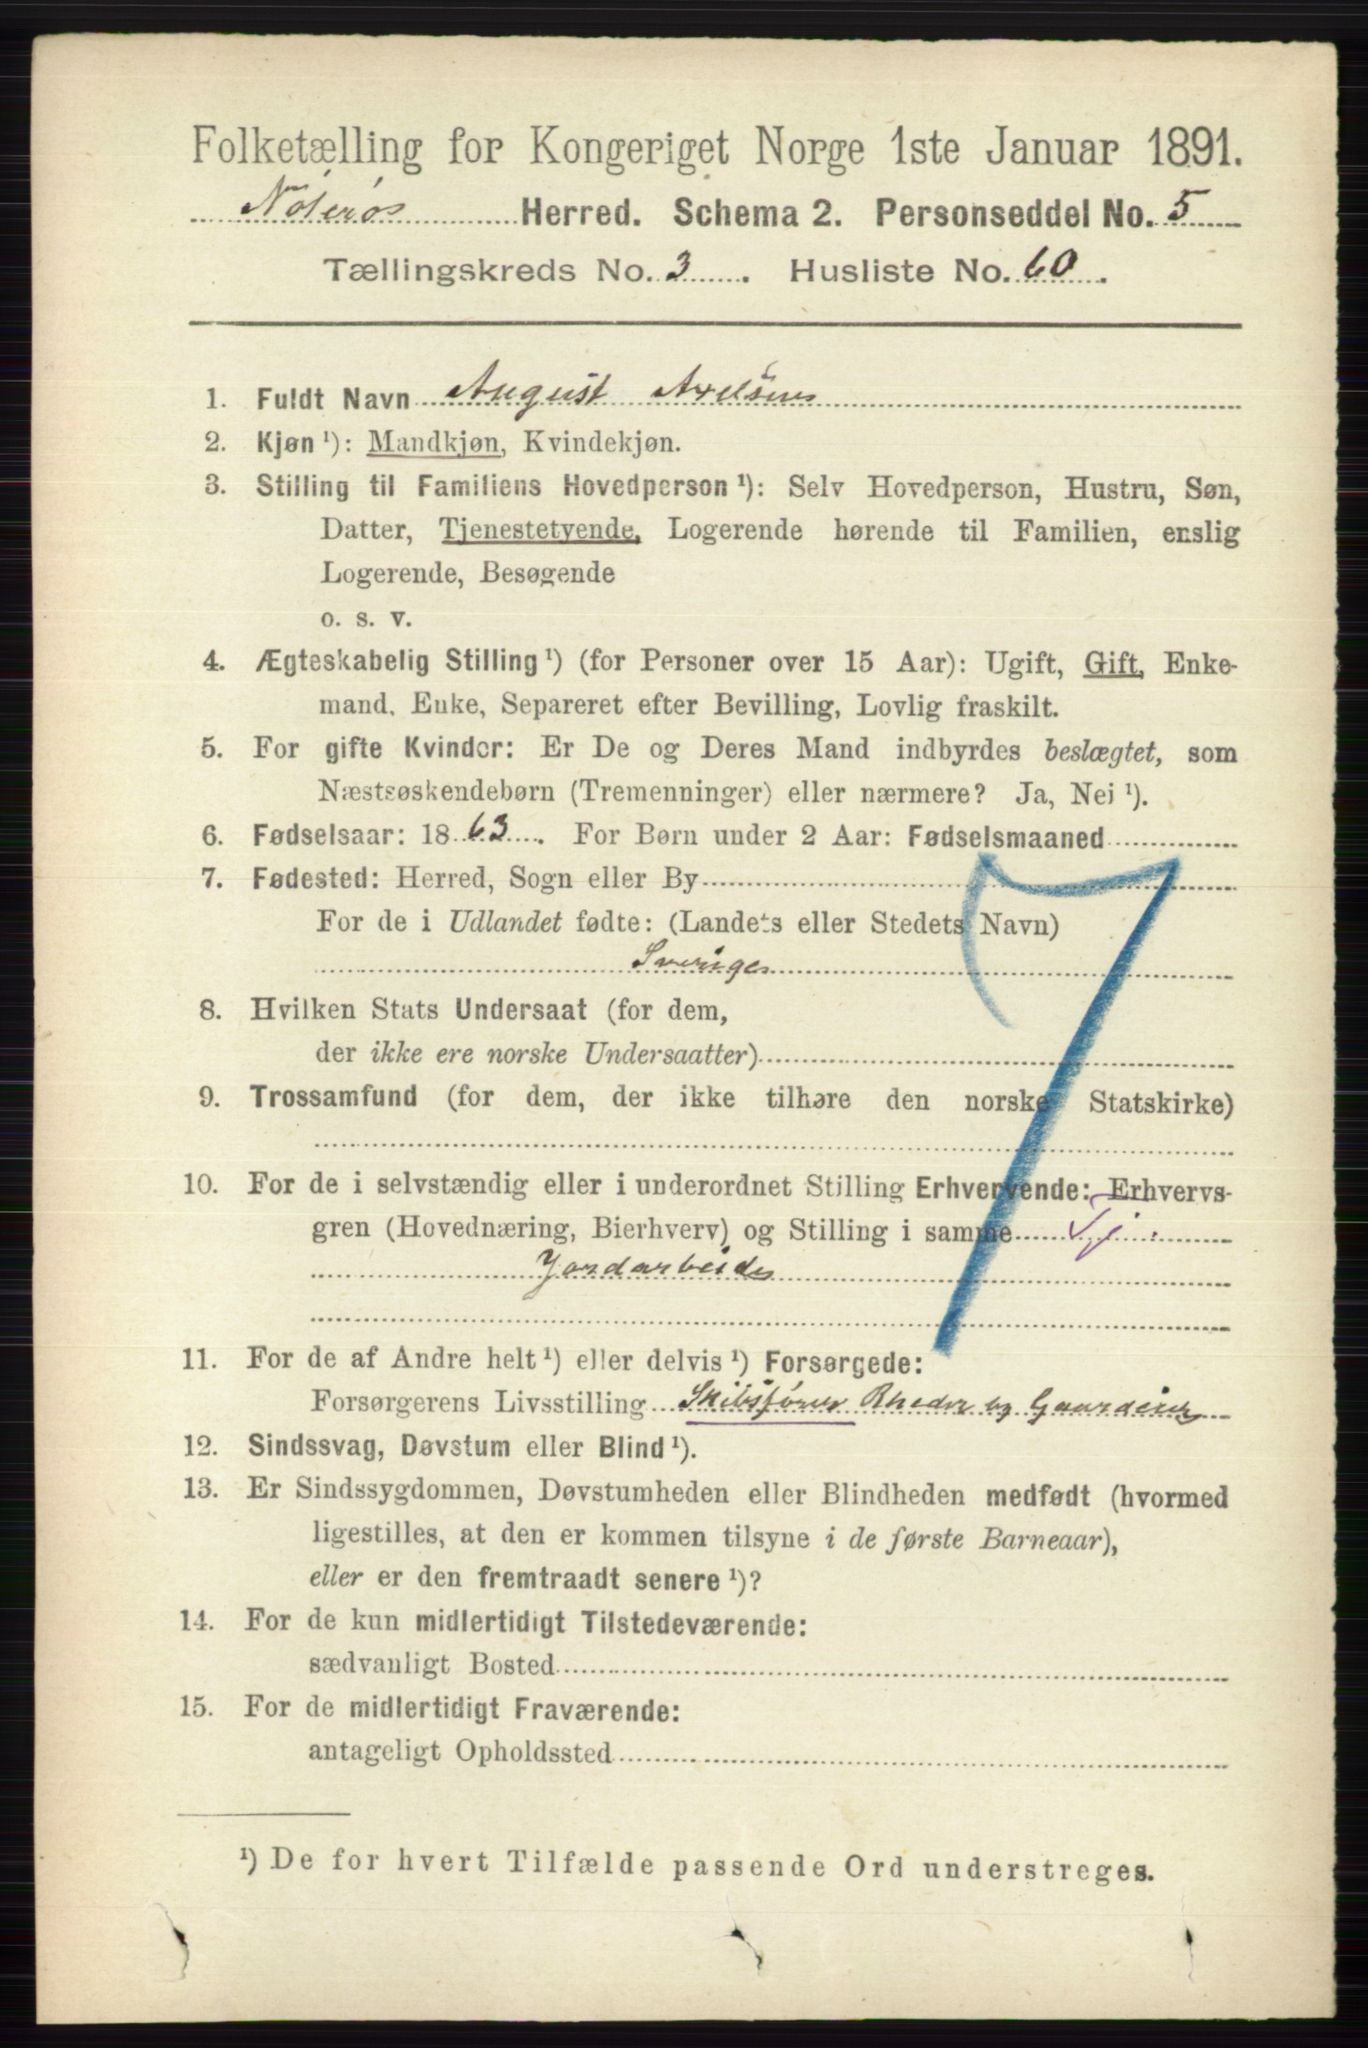 Folketælling for Kongeriget Norge 1ste Januar 1891.
Nøterøs Herred. Schema 2. Personseddel No. 5
Tællingskreds No. 3. Husliste No. 60.
1. Fuldt Navn August Axelsen
2. Kjøn ¹): Mandkjøn, Kvindekjøn.
3. Stilling til Familiens Hovedperson ¹): Selv Hovedperson, Hustru, Søn,
Datter, Tjenestetyende, Logerende hørende til Familien, enslig
Logerende, Besøgende
o. s. v.
4. Ægteskabelig Stilling ¹) (for Personer over 15 Aar): Ugift, Gift, Enke-
mand, Enke, Separeret efter Bevilling, Lovlig fraskilt.
5. For gifte Kvinder: Er De og Deres Mand indbyrdes beslægtet, som
Næstsøskendebørn (Tremenninger) eller nærmere? Ja, Nei ¹).
6. Fødselsaar: 1863. For Børn under 2 Aar: Fødselsmaaned
7. Fødested: Herred, Sogn eller By
For de i Udlandet fødte: (Landets eller Stedets Navn)
Sverige
8. Hvilken Stats Undersaat (for dem,
der ikke ere norske Undersaatter)
9. Trossamfund (for dem, der ikke tilhøre den norske Statskirke)
10. For de i selvstændig eller i underordnet Stilling Erhvervende: Erhvervs-
gren (Hovednæring, Bierhverv) og Stilling i samme Tj.
Jordarbeider
11. For de af Andre helt ¹) eller delvis ¹) Forsørgede:
Forsørgerens Livsstilling Skibsfører Rheder og Gaardeier
12. Sindssvag, Døvstum eller Blind ¹).
13. Er Sindssygdommen, Døvstumheden eller Blindheden medfødt (hvormed
ligestilles, at den er kommen tilsyne i de første Barneaar),
eller er den fremtraadt senere ¹)?
14. For de kun midlertidigt Tilstedeværende:
sædvanligt Bosted
15. For de midlertidigt Fraværende:
antageligt Opholdssted
¹) De for hvert Tilfælde passende Ord understreges.
7